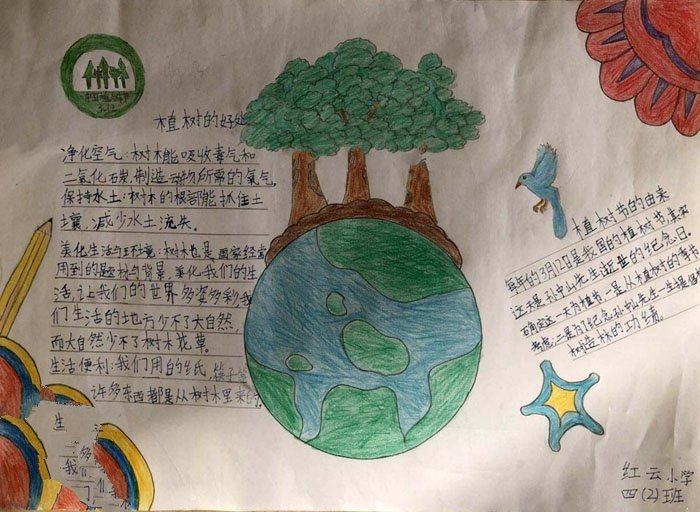 中国植树节
3.12
植树的好处
净化空气:树木能吸收毒气和
二氧化石炭,制造动物所需的氧气
保持水土:树木的根部能抓住土
壤,减少水土流失。
美化生活与环境:树木也是画家经常
用到的题材与背景,美化我们的生
活,让我们的世界多姿多彩,我
们生活的地方少不了大自然,
而大自然少不了树木花草。
生活便利:我们用的纸、筷子等
许多东西都是从树木里来的。
生
多
我们
植树节的由来
每年的3月12日是我国的植树节,其实
这天是孙中山先生逝世的纪念日。
确定这一天为植树节,一是从植树的季节
考虑,二是为了纪念孙先生一生提倡
植树造林的功绩。
红云小学
四(2)班